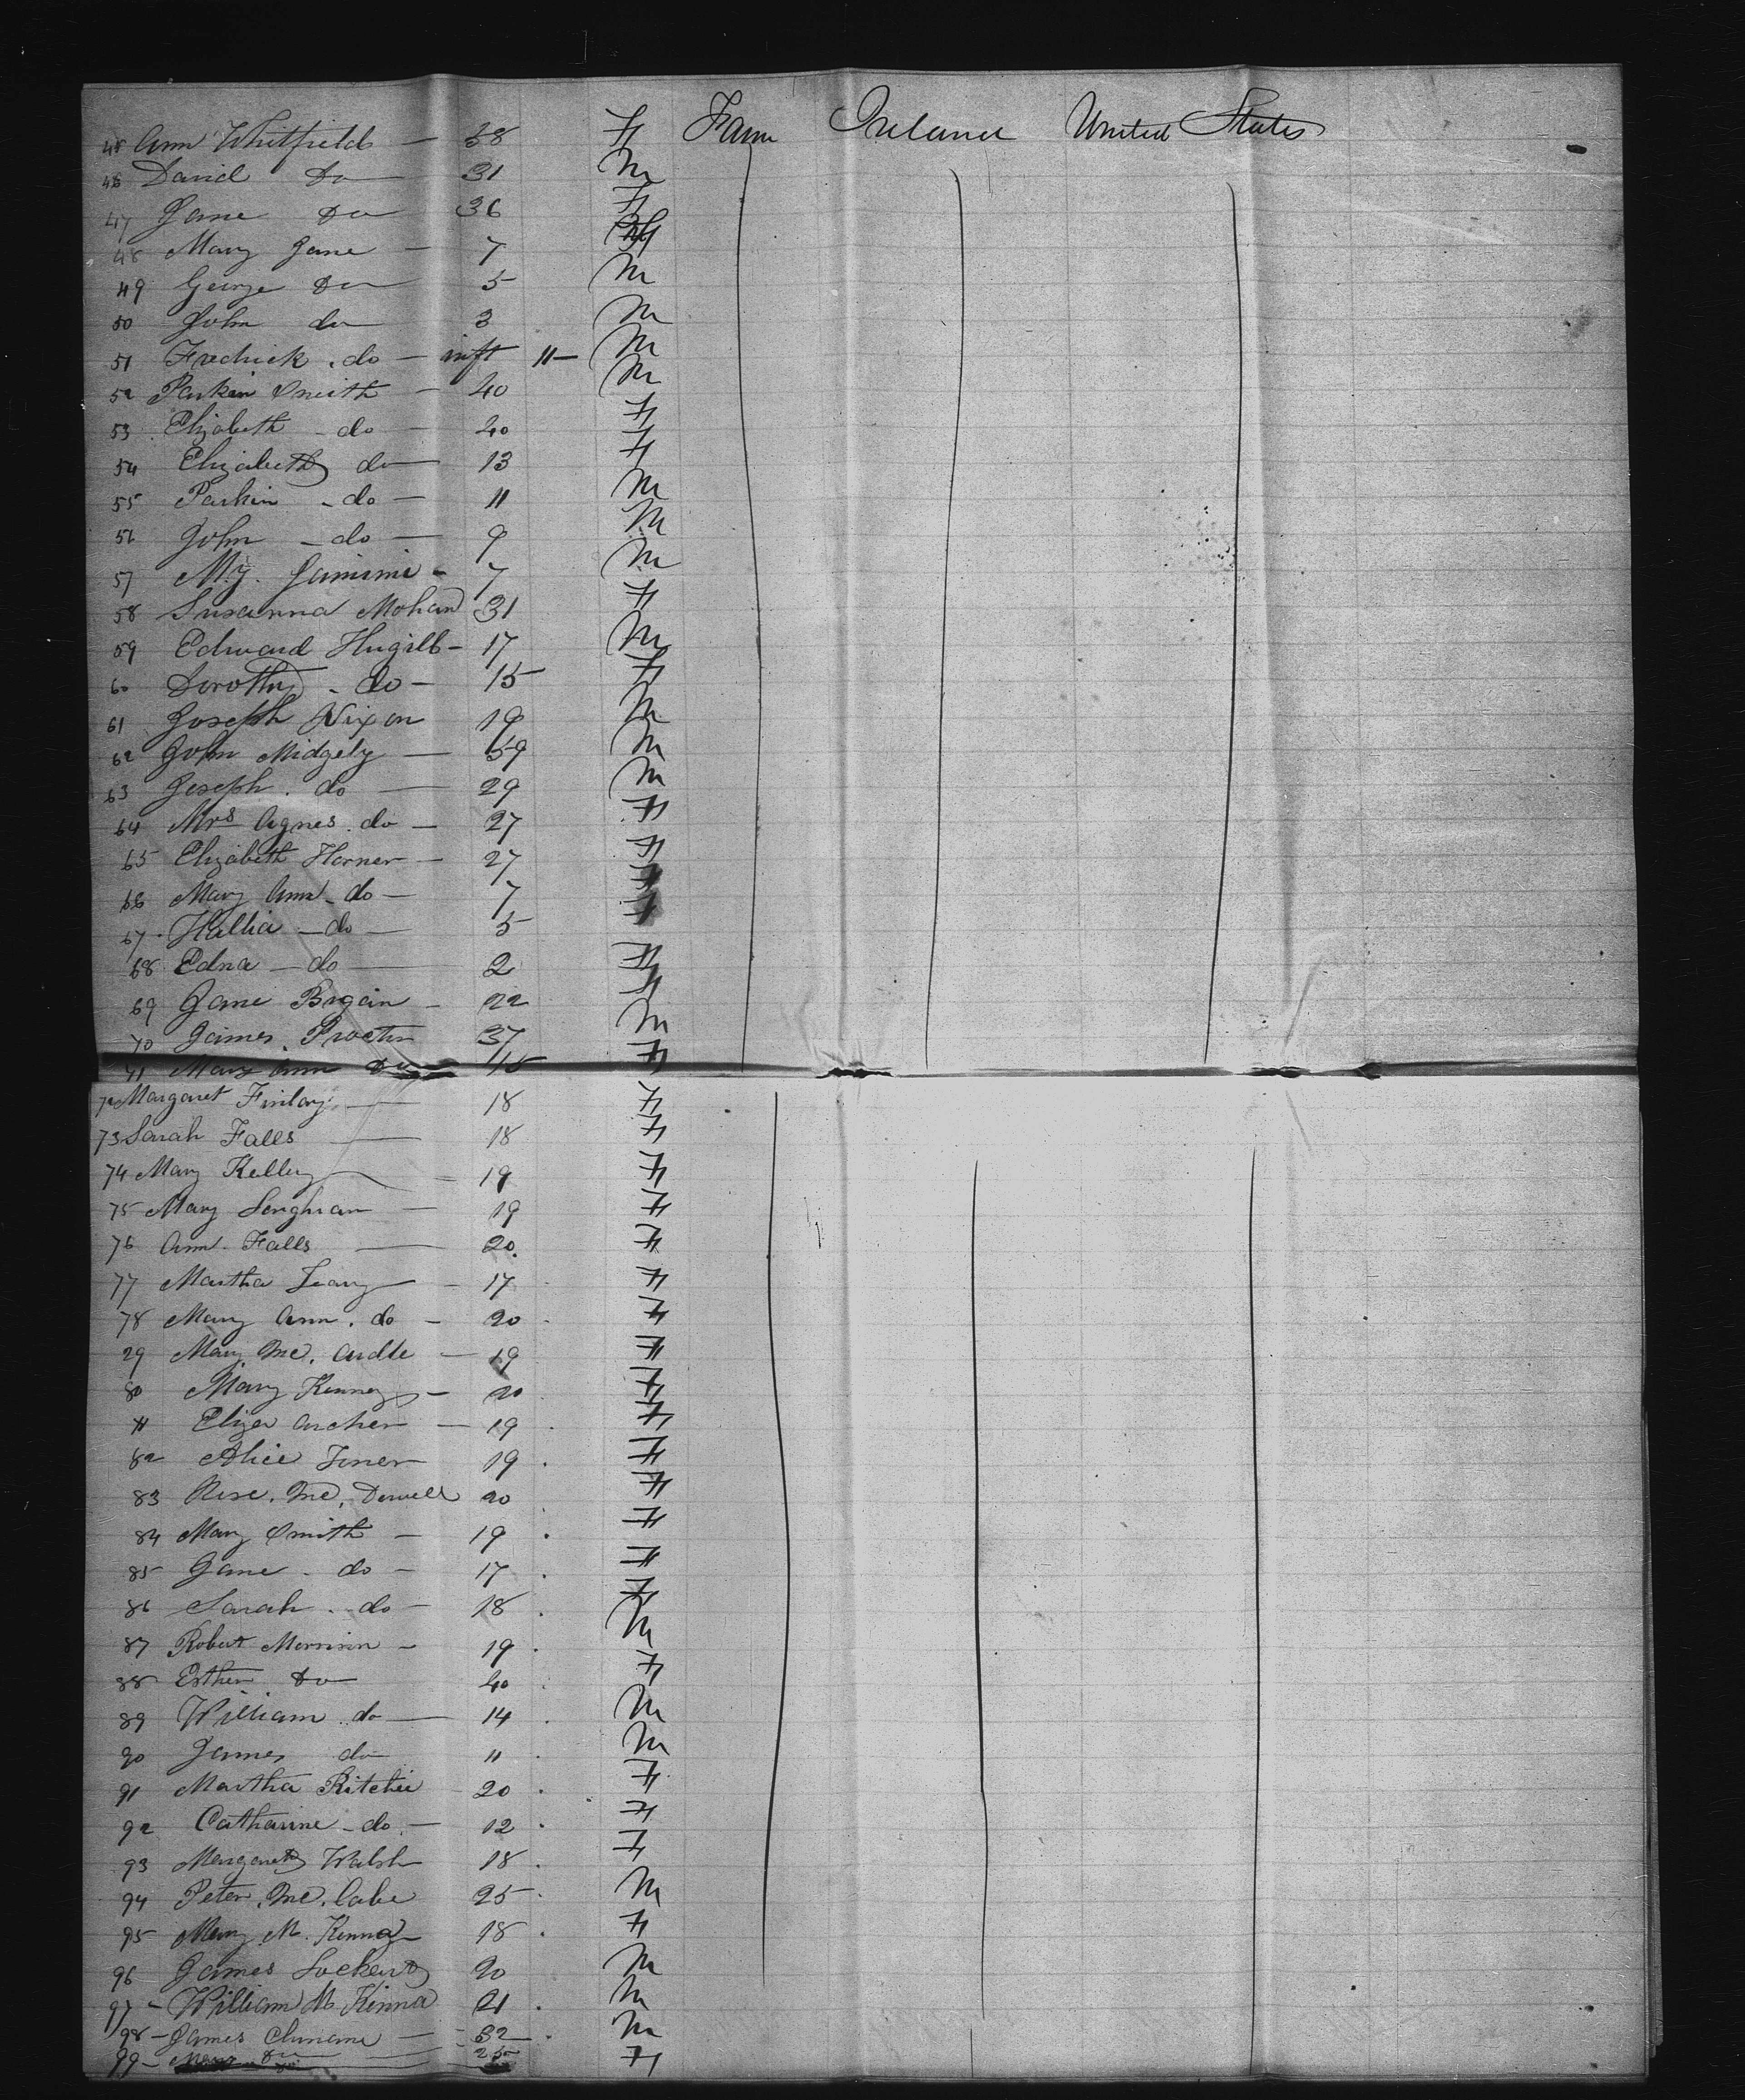 45 Ann Whitfield — 58 F Farm Ireland United States
46 David Do — 31 M
47 Jane Do — 36 F
48 Mary Jane — 7
49 George Do — 5 M
50 John do — 3 M
51 Fredrick . do — inft 11 — M
52 Parkin Smith — 40 M
53 Elizabeth - do — 40 F
54 Elizabeth do — 13 F
55 Parkin - do — 11 M
56 John - do — 9 M
57 — 7 M
58 Susanna Mohan 31 F
59 Edward Hugill - 17 M
60 Dorothy - do - 15 F
61 Joseph Nixon 19 M
62 John Midgely — 59 M
63 Joseph . do — 29 M
64 Mrs Agnes . do — 27 F
65 Elizabeth Horner — 27 F
66 Mary Ann - do — 7 F
67 Hallia — do — 5 F
68 Edna — do — 2 F
69 Jane — 22 F
70 James . Procter 37 M
71 Mary Ann Do 15 F
72 Margaret Finlay — 18 F
73 Sarah Falls — 18 F
74 Mary Kelley — 19 F
75 Mary — 19 F
76 Ann . Falls — 20 F
77 Martha — 17 F
78 Mary Ann . do — 20 F
79 Mary Mc. Ardle — 19 F
80 Mary Kenney — 20 F
81 Eliza Archer — 19 F
82 Alice 19 F
83 Rose . Mc. 20 F
84 Mary Smith — 19 F
85 Jane - do — 17 F
86 Sarah . do — 18 F
87 Robert Morrison — 19 M
88 Esther Do 40 F
89 William . do — 14 M
90 James do 11 M
91 Martha Ritchie 20 F
92 Catharine - do — 12 F
93 Margaret Walsh 18 F
94 Peter . Mc. Cabe 25 M
95 Mary M. Kenna 18 F
96 James Lockert 20 M
97 - William M. Kinna 21 M
98 - James — 32 M
99 - Mary Do 25 F